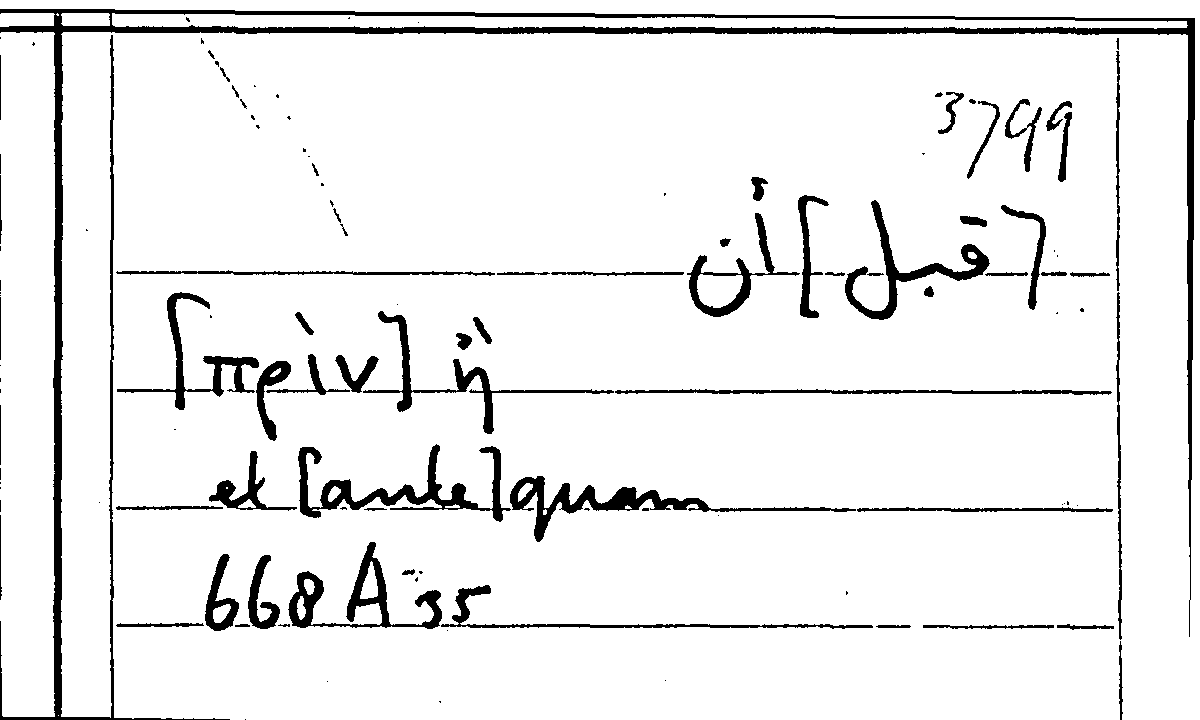 3799
[قبل] أن
[πρὶν] ἢ
et [ante]quam
668 A 35